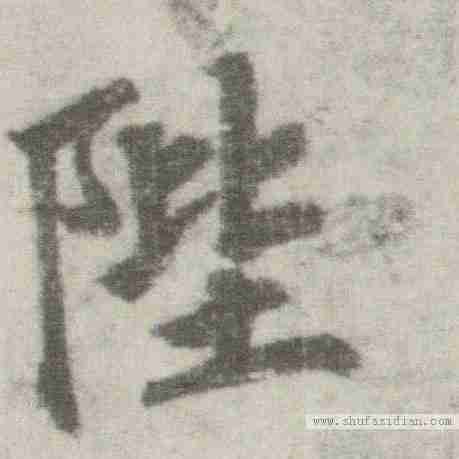 陛
www.shufazidian.com